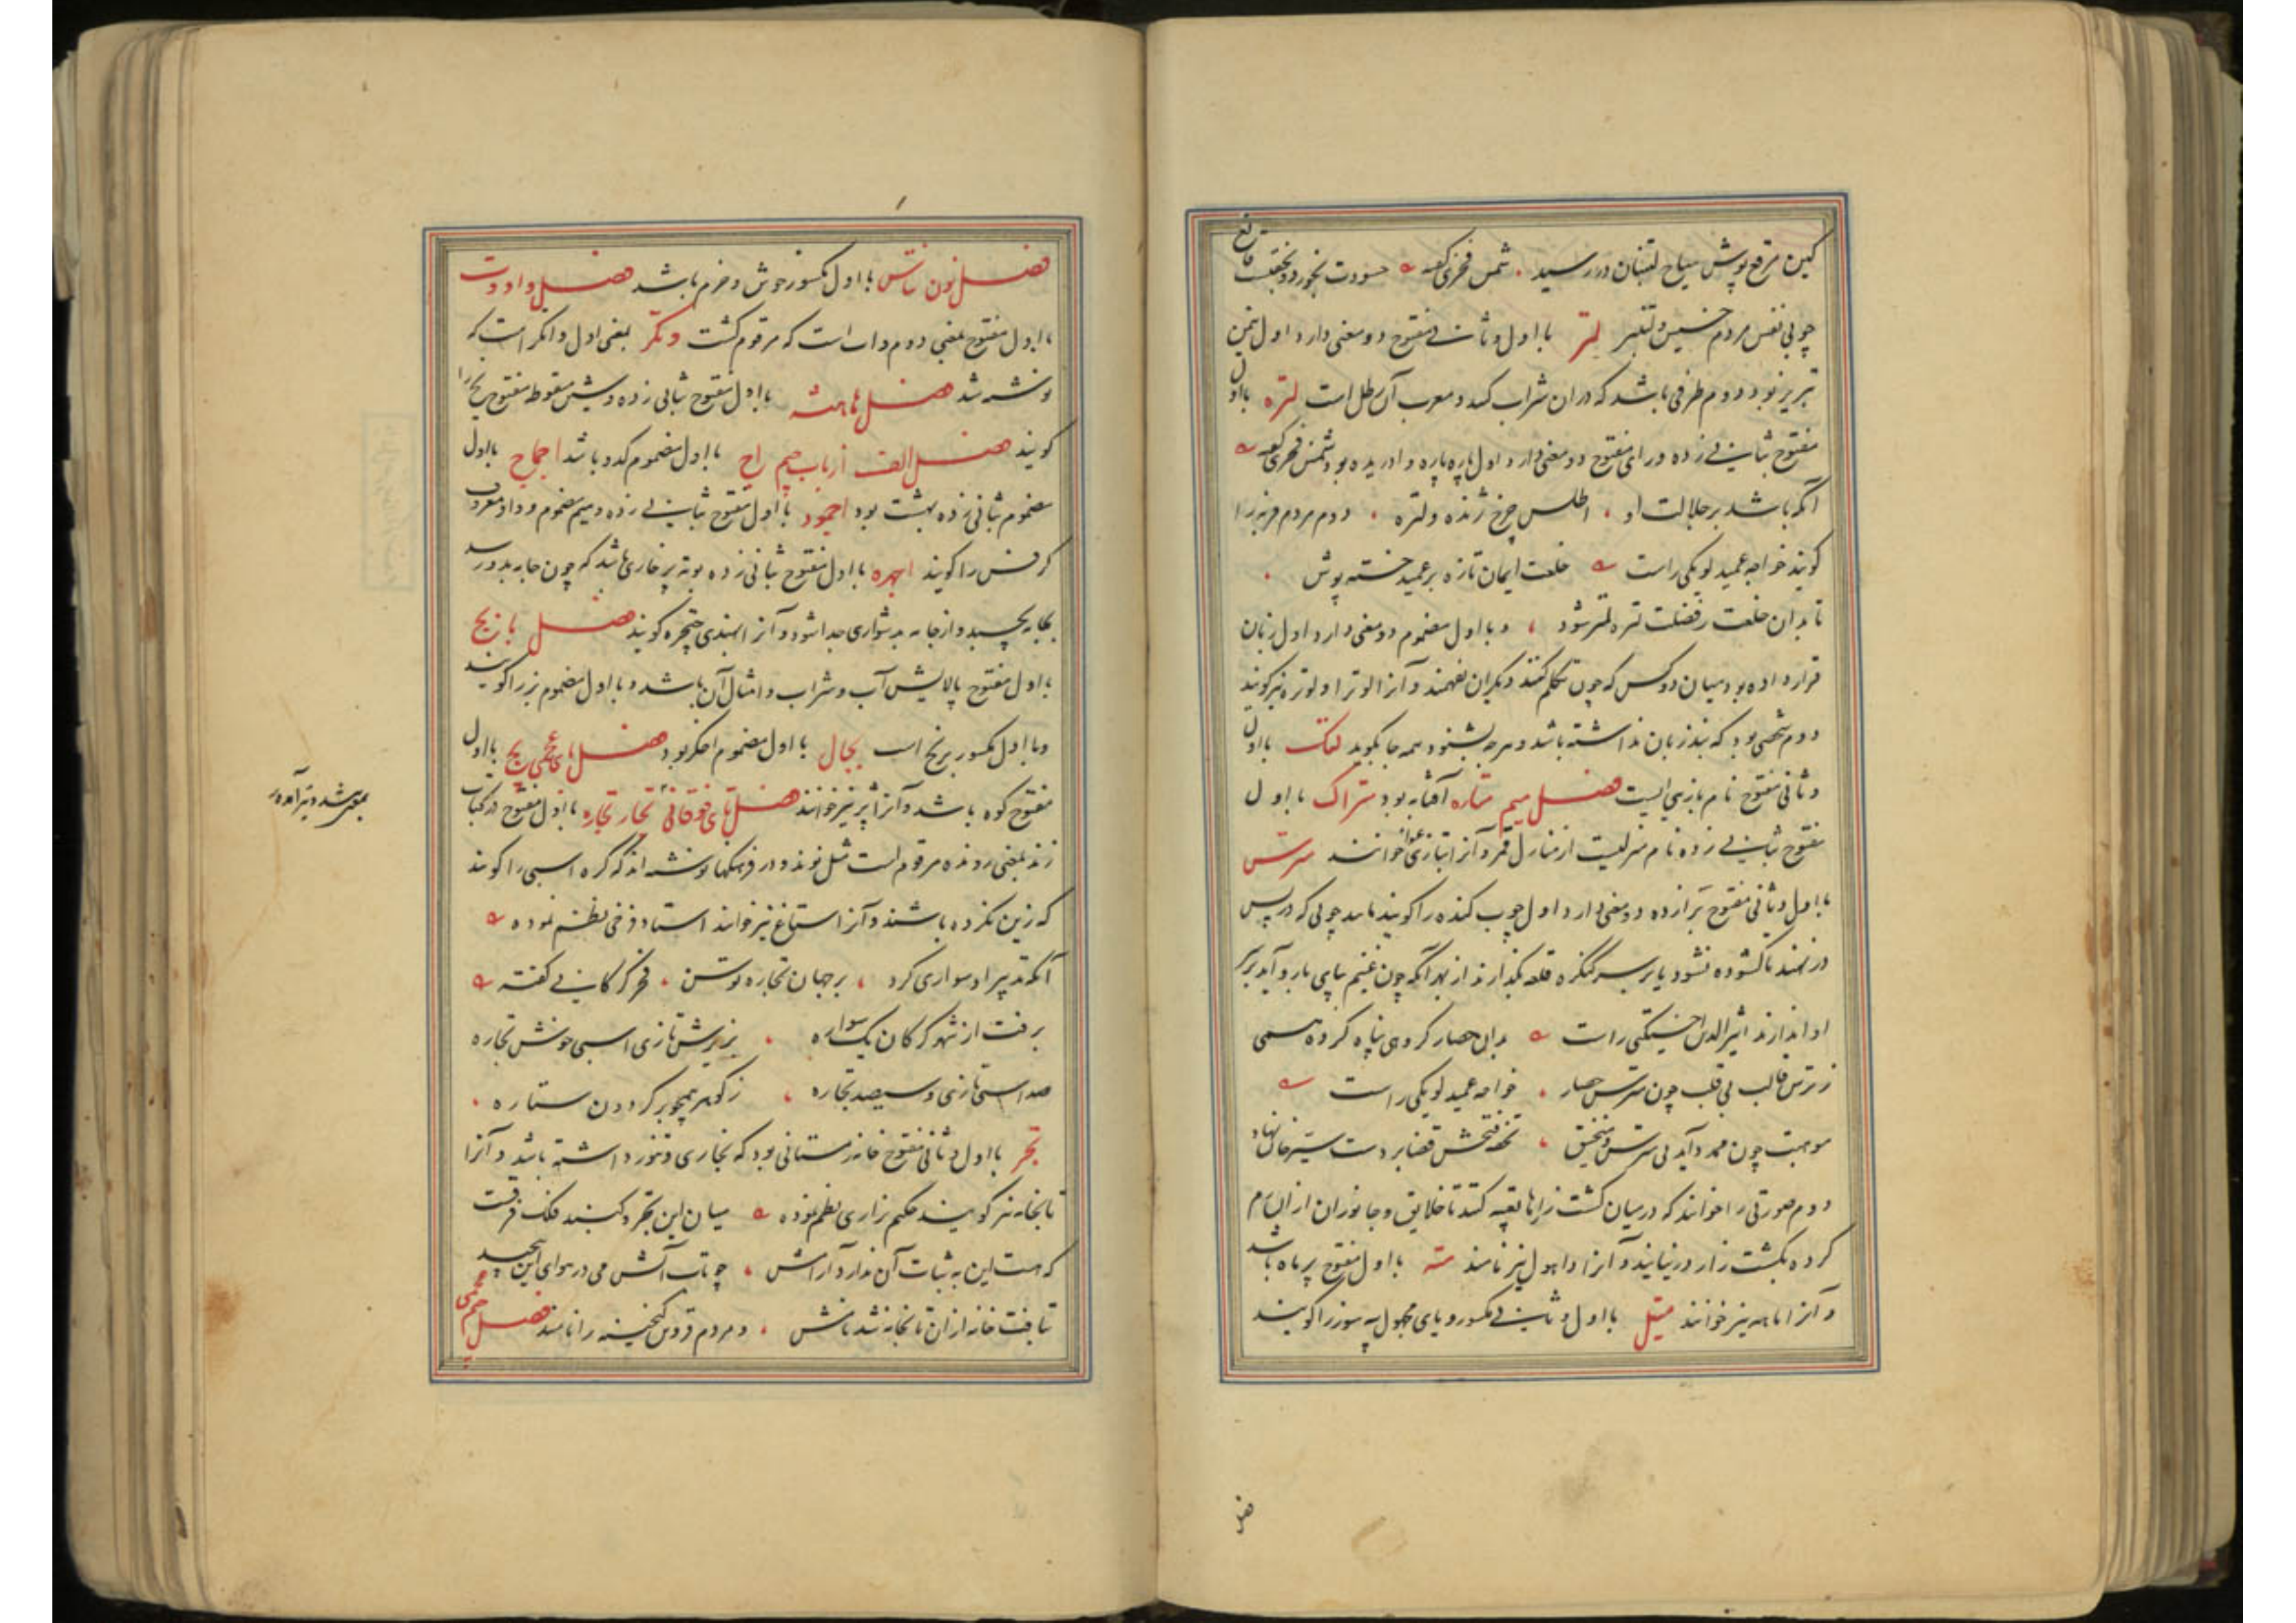 کین مرقع پوش سیاح لتنبان در رسید شمس فخری گفته حسودت نخورد و نخفت قانع
چو بی نفس مردم خسیس و لتنبر لتر با اول و ثانی مفتوح دو معنی دارد اول من
تبریز بود دوم ظرفی باشد که در ان شراب کنند و معرب آن رطل است لتره با اول
مفتوح بثانی زده و رای مفتوح دو معنی دارد اول پاره پاره و دریده بود شمس فخری گفته
آنکه باشد بر جلالت او اطلس چرخ ژنده و لتره دوم مردم فربه را
گویند خواجه عمید لویکی راست خلعت ایمان تازه بر عمید خسته پوش
تا بدان خلعت رفضلت تره لتر شود و با اول مضموم دو معنی دارد اول زبان
قرار داده بود میان دو کس که چون تکلم کنند دیگران نفهمند و آنرا لوترا و لوتره نیز گویند
دوم شخصی بود که بند زبان نداشته باشد و هرچه بشنود همه جا بگوید لتک با اول
و ثانی مفتوح نام بازیی است فصل میم متاره آفتابه بود متراک با اول
مفتوح بثانی زده نام منزلیست از منازل قمر و آنرا بتازی خوانند مترس
با اول و ثانی مفتوح برا زده دو معنی دارد اول چوب کنده را گویند مانند چوبی که در پس
در نهند تا کشوده نشود یا بر سر کنگره قلعه بگذارند از بهر آنکه چون غنیم بپای بارو آید بر سر
او اندازند اثیر الدین اخسیکتی راست بدان حصار گروهی پناه کرده همی
ز ترس قالب بی قلب چون مترس حصار خواجه عمید لویکی راست
موهبت چون ممد و آید بی مترس و منجنیق تحفه فتحش قضا بر دست سیر خان نهاد
دوم صورتی را خوانند که در میان کشت زارها تعبیه کنند تا خلایق و جانوران از ان رم
کرده بکشت زار درنیایند و آنرا داهول نیز نامند مته با اول مفتوح پر ماه باشد
و آنرا ماهه نیز خوانند متیل با اول و ثانی مکسور و یای مجهول پیه سوز را گویند
فصل
فصل نون نتاس با اول مکسور خوش و خرم باشد فصل واو وت
با اول مفتوح بمعنی دوم وات است که مرقوم گشت وتگر بمعنی اول واتگر است که
نوشته شد فصل ها هتشه با اول مفتوح بثانی زده و شین منقوط مفتوح یخ را
گویند فصل الف از باب جیم اج با اول مضموم کدو باشد اجماج با اول
مضموم بثانی زده بهشت بود اجمود با اول مفتوح بثانی زده و میم مضموم و واو معروف
کرفس را گویند اجهره با اول مفتوح بثانی زده بوته پر خاری باشد که چون جامه بدو رسد
بجامه بچسبد و از جامه بدشواری جدا شود و آنرا بهندی چچره گویند فصل با بج
با اول مفتوح پالایش آب و شراب و امثال آن باشد و با اول مضموم بز را گویند
و با اول مکسور برنج است بجال با اول مضموم اخگر بود فصل بای عجمی پج با اول
مفتوح کوه باشد و آنرا پژ نیز خوانند فصل تای فوقانی تجار تجاره با اول مفتوح در کتاب
زند بمعنی رونده مرقوم است مثل نوند و در فرهنگها نوشته اند که کره اسبی را گویند
بموی شد و تیر آمد و
که زین نکرده باشند و آنرا ستاغ نیز خوانند استاد فرخی نظم نموده
آنکه تدبیر او سواری کرد بر جهان تجاره توسن فخر گرگانی گفته
برفت از شهر گرگان یک سواره بزیرش تازی اسبی خوش تجاره
صد اسب تازی و سیصد تجاره ز گوهر همچو بر گردون ستاره
تجر با اول و ثانی مفتوح خانه زمستانی بود که بخاری و تنور داشته باشد و آنرا
تابخانه نیز گویند حکیم نزاری نظم نموده میان این تجر و گنبد فلک فرقست
که هست این به ثبات آن ندارد آرامش چو تاب آتش می در هوای این پیچید
تافت خانه از ان تابخانه شد نامش و مردم قزوین گنجینه را نامند فصل جیم عجمی